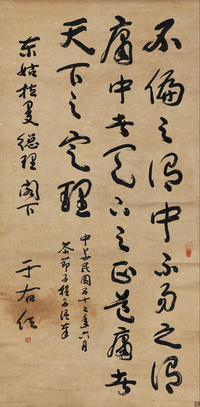 不偏之謂中不易之謂
庸中者天下之正道庸者
天下之定理
東姑拉曼總理閣下
中華民國五十年六月
子程子語
于右任